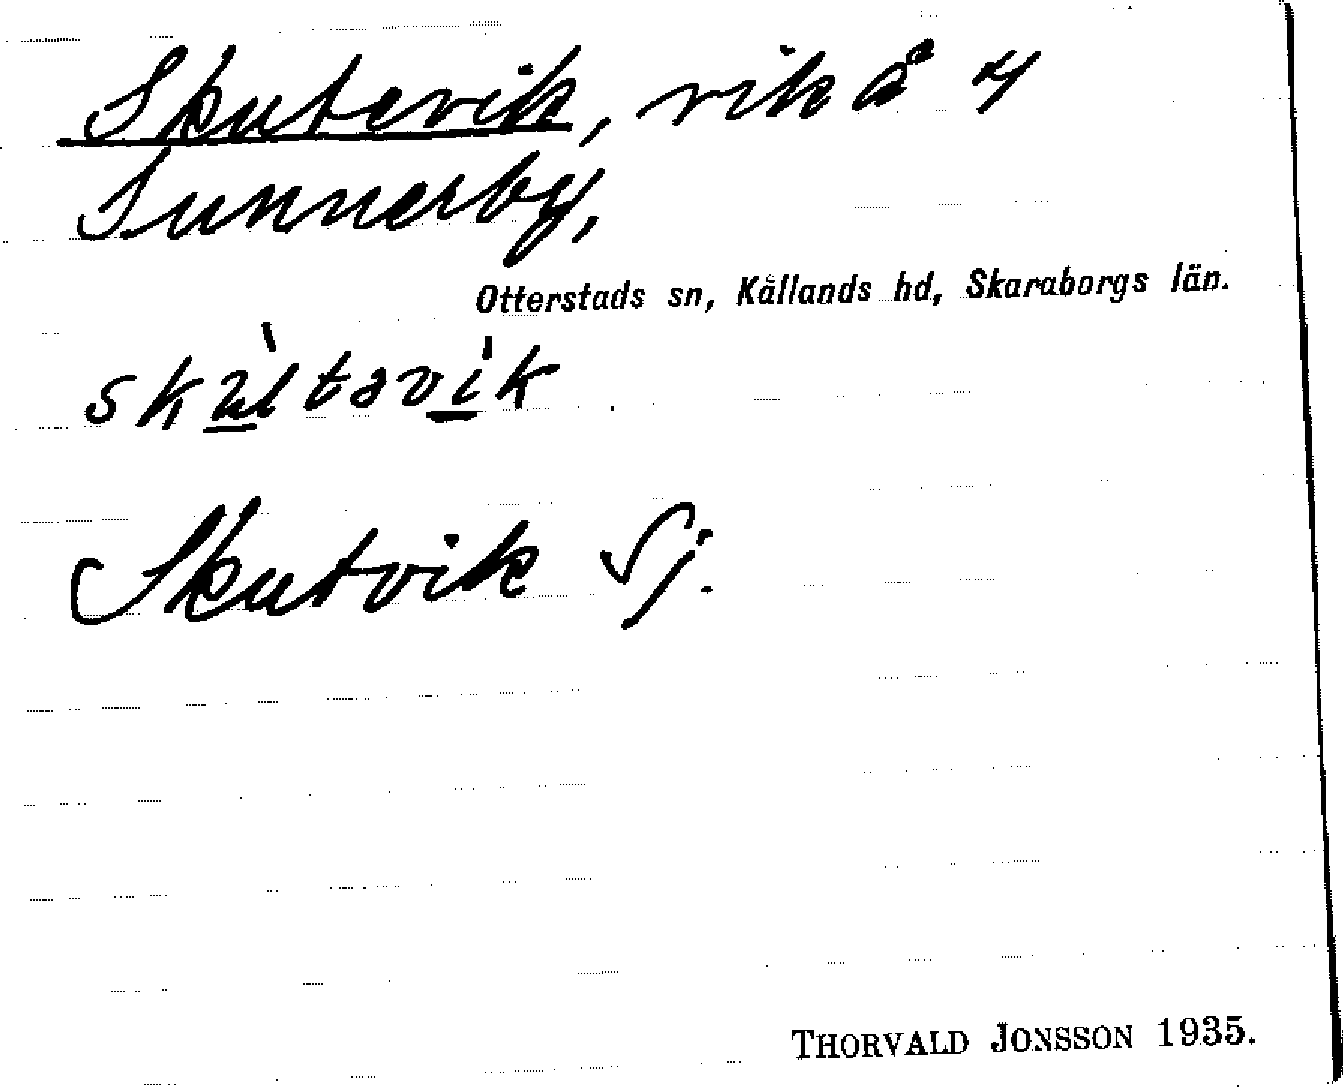 Skutevik, vik å 4
Sunnerby,
Otterstads sn, Kållands hd, Skaraborgs län.
Skutvik Sj.
THORVALD JONSSON 1935.